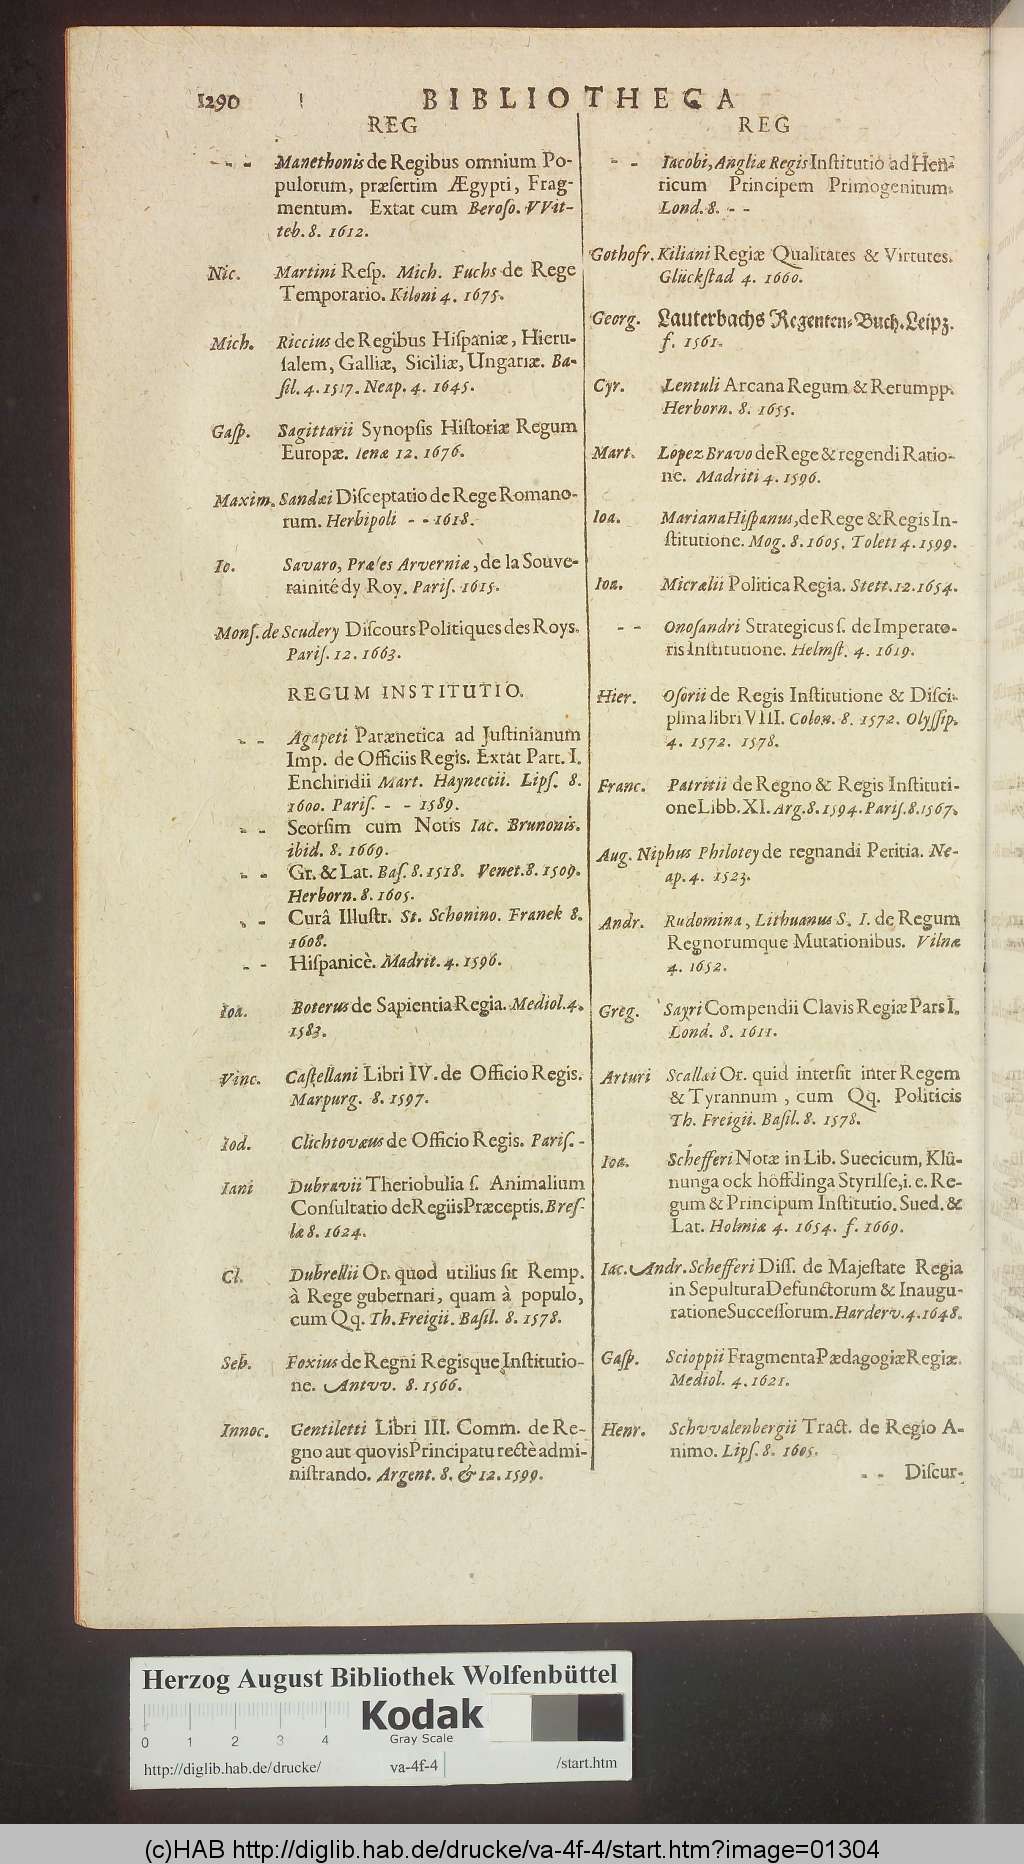 1290 BIBLIOTHECA
REG
- - - Manethonis de Regibus omnium Po-
pulorum, præsertim Ægypti, Frag-
mentum. Extat cum Beroso. VVit-
teb. 8. 1612.
Nic. Martini Resp. Mich. Fuchs de Rege
Temporario. Kiloni 4. 1675.
Mich. Riccius de Regibus Hispaniæ, Hieru-
salem, Galliæ, Siciliæ, Ungariæ. Ba-
sil. 4. 1517. Neap. 4. 1645.
Gasp. Sagittarii Synopsis Historiæ Regum
Europæ. Ienæ 12. 1676.
Maxim. Sandæi Disceptatio de Rege Romano-
rum. Herbipoli - - 1618.
Io. Savaro, Præses Arverniæ, de la Souve-
rainité dy Roy. Paris. 1615.
Mons. de Scudery Discours Politiques des Roys.
Paris. 12. 1663.
REGUM INSTITUTIO.
- - Agapeti Parænetica ad Justinianum
Imp. de Officiis Regis. Extat Part. I.
Enchiridii Mart. Haynectii. Lips. 8.
1600. Paris. - - 1589.
- - Seorsim cum Notis Iac. Brunonis.
ibid. 8. 1669.
- - Gr. & Lat. Bas. 8. 1518. Venet. 8. 1509.
Herborn. 8. 1605.
- - Curâ Illustr. St. Schonino. Franek 8.
1608.
- - Hispanicè. Madrit. 4. 1596.
Ioa. Boterus de Sapientia Regia. Mediol. 4.
1583.
Vinc. Castellani Libri IV. de Officio Regis.
Marpurg. 8. 1597.
Iod. Clichtovæus de Officio Regis. Paris. -
Iani Dubravii Theriobulia s. Animalium
Consultatio de Regiis Præceptis. Bres-
læ 8. 1624.
Cl. Dubrellii Or. quod utilius sit Remp.
à Rege gubernari, quam à populo,
cum Qq. Th. Freigii. Basil. 8. 1578.
Seb. Foxius de Regni Regisque Institutio-
ne. Antvv. 8. 1566.
Innoc. Gentiletti Libri III. Comm. de Re-
gno aut quovis Principatu rectè admi-
nistrando. Argent. 8. & 12. 1599.
REG
- - Iacobi, Angliæ Regis Institutio ad Hen-
ricum Principem Primogenitum.
Lond. 8. - -
Gothofr. Kiliani Regiæ Qualitates & Virtutes.
Glückstad 4. 1660.
Georg. Lauterbachs Regenten-Buch. Leipz.
f. 1561.
Cyr. Lentuli Arcana Regum & Rerumpp.
Herborn. 8. 1655.
Mart. Lopez Bravo de Rege & regendi Ratio-
ne. Madriti 4. 1596.
Ioa. Mariana Hispanus, de Rege & Regis In-
stitutione. Mog. 8. 1605. Toleti 4. 1599.
Ioa. Micrælii Politica Regia. Stett. 12. 1654.
- - Onosandri Strategicus s. de Imperato-
ris Institutione. Helmst. 4. 1619.
Hier. Osorii de Regis Institutione & Disci-
plina libri VIII. Colon. 8. 1572. Olyssip.
4. 1572. 1578.
Franc. Patritii de Regno & Regis Instituti-
one Libb. XI. Arg. 8. 1594. Paris. 8. 1567.
Aug. Niphus Philotey de regnandi Peritia. Ne-
ap. 4. 1523.
Andr. Rudomina, Lithuanus S. I. de Regum
Regnorumque Mutationibus. Vilnæ
4. 1652.
Greg. Sayri Compendii Clavis Regiæ Pars I.
Lond. 8. 1611.
Arturi Scallai Or. quid intersit inter Regem
& Tyrannum, cum Qq. Politicis
Th. Freigii. Basil. 8. 1578.
Ioa. Schefferi Notæ in Lib. Suecicum, Klû-
nunga ock höffdinga Styrilse, i. e. Re-
gum & Principum Institutio. Sued. &
Lat. Holmiæ 4. 1654. f. 1669.
Iac. Andr. Schefferi Diss. de Majestate Regia
in Sepultura Defunctorum & Inaugu-
ratione Successorum. Harderv. 4. 1648.
Gasp. Scioppii Fragmenta Pædagogiæ Regiæ.
Mediol. 4. 1621.
Henr. Schvvalenbergii Tract. de Regio A-
nimo. Lips. 8. 1605.
- - Discur-
Herzog August Bibliothek Wolfenbüttel
Kodak
Gray Scale
0 1 2 3 4
http://diglib.hab.de/drucke/ va-4f-4 /start.htm
(c)HAB http://diglib.hab.de/drucke/va-4f-4/start.htm?image=01304